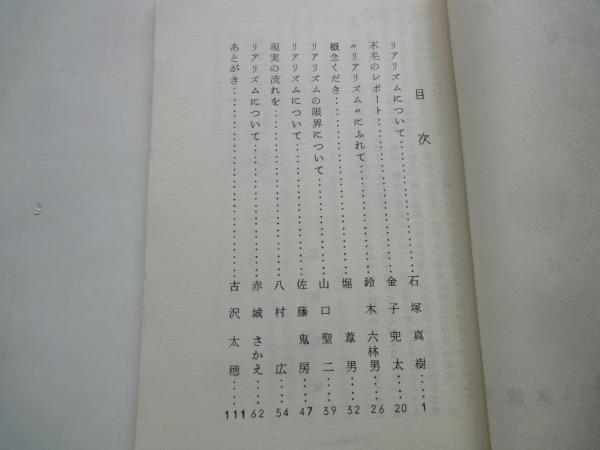 目次
リアリズムについて・・・・・・・・・・・・石塚真樹・・・・1
不毛のレポート・・・・・・・・・・・・金子兜太・・・・20
〝リアリズム〟にふれて・・・・・・・・・・・・鈴木六林男・・・・26
概念くだき・・・・・・・・・・・・堀葦男・・・・32
リアリズムの限界について・・・・・・・・・・・・山口聖二・・・・39
リアリズムについて・・・・・・・・・・・・佐藤鬼房・・・・47
現実の流れを・・・・・・・・・・・・八村広・・・・54
リアリズムについて・・・・・・・・・・・・赤城さかえ・・・・62
あとがき・・・・・・・・・・・・古沢太穂・・・・111